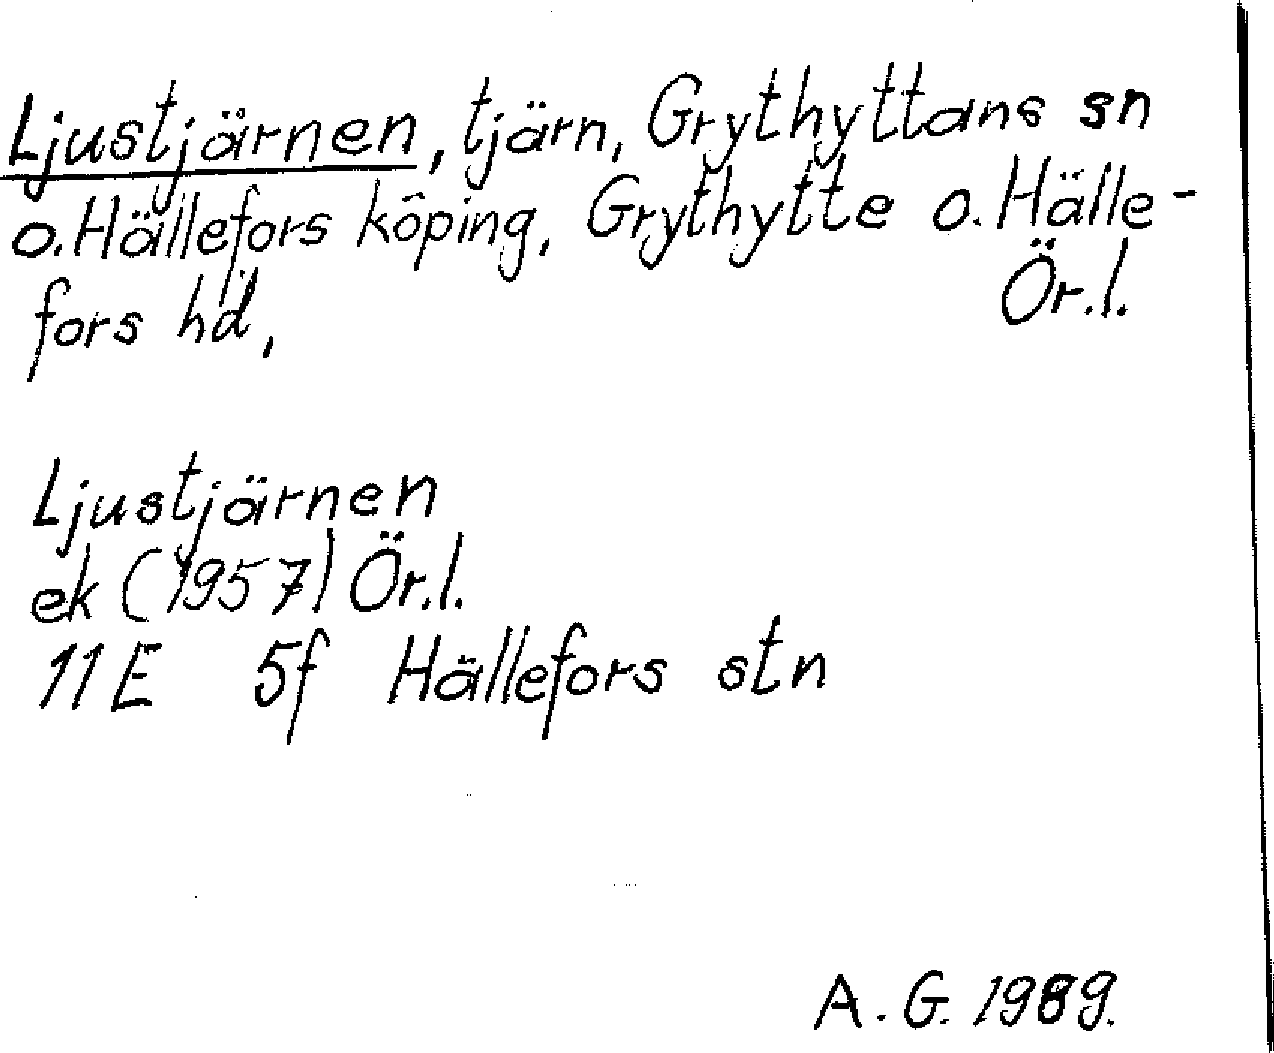 Ljustjärnen, tjärn, Grythyttans sn
o. Hällefors köping, Grythytte o. Hälle-
fors hd, Ör.l.
Ljustjärnen
ek (1957) Ör.l.
11E 5f Hällefors stn
A.G. 1989.